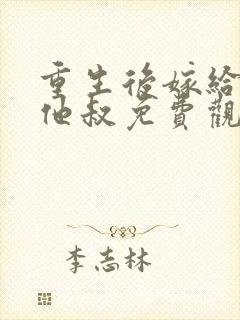 重生後嫁給
他叔免費觀
李志林